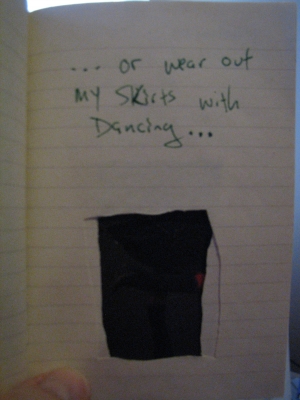 ... or wear out
MY Skirts with
Dancing...